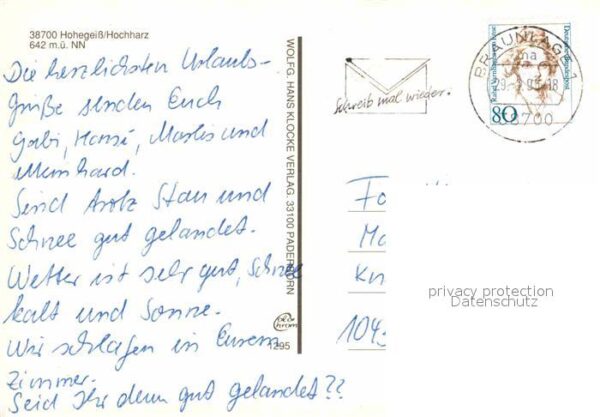 38700 Hohegeiß/Hochharz
642 m.ü. NN
Die herzlichsten Urlaubs-
grüße senden Euch
Gabi, Hansi, und
Meinhard.
Sind trotz Stau und
Schnee gut gelandet.
Wetter ist sehr gut, Schnee
kalt und Sonne.
Wir schlafen in Eurem
Zimmer.
Seid Ihr denn gut gelandet??
WOLFG. HANS KLOCKE VERLAG, 33100 PADERBORN
1295
Schreib mal wieder.
BRAUNLAGE 1
38700
Deutsche Bundespost
80
privacy protection
Datenschutz